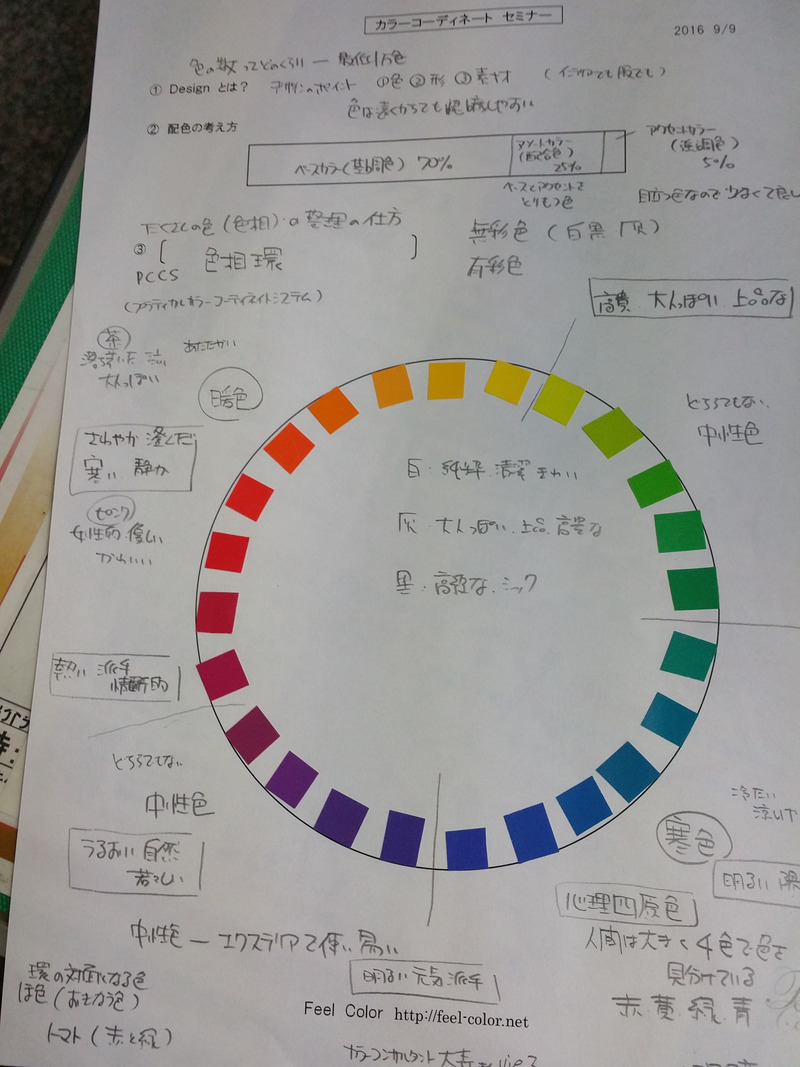 カラーコーディネート セミナー
2016 9/9
色の数ってどのくらい ー 最低1万色
① Design とは? デザインのポイント ①色 ②形 ③素材
色は遠くからでも認識しやすい
② 配色の考え方
ベースカラー(基調色) 70%
アソートカラー
(配合色)
25%
アクセントカラー
(強調色)
5%
ベースとアクセントを
とりもつ色
目立つ色なので少なくて良い
たくさんの色(色相)の整理の仕方
③ [ 色相環 ]
PCCS
無彩色(白黒灰)
有彩色
高貴 大人っぽい 上品な
茶
大人っぽい
あたたかい
暖色
どちらでもない
中性色
さわやか 澄んだ
寒い 静か
ピンク
女性的 優しい
かわいい
白:純粋 清潔 きれい
灰:大人っぽい 上品 高貴な
黒:高級な シック
熱い 派手
情熱的
どちらでもない
中性色
うるおい 自然
若々しい
冷たい
寒色
明るい
心理四原色
人間は大きく4色で色を
見分けている
赤 黄 緑 青
中性色 ー エクステリアで使い易い
明るい 元気 派手
環の対面になる色
ほ色(おぎなう色)
トマト(赤と緑)
Feel Color http://feel-color.net